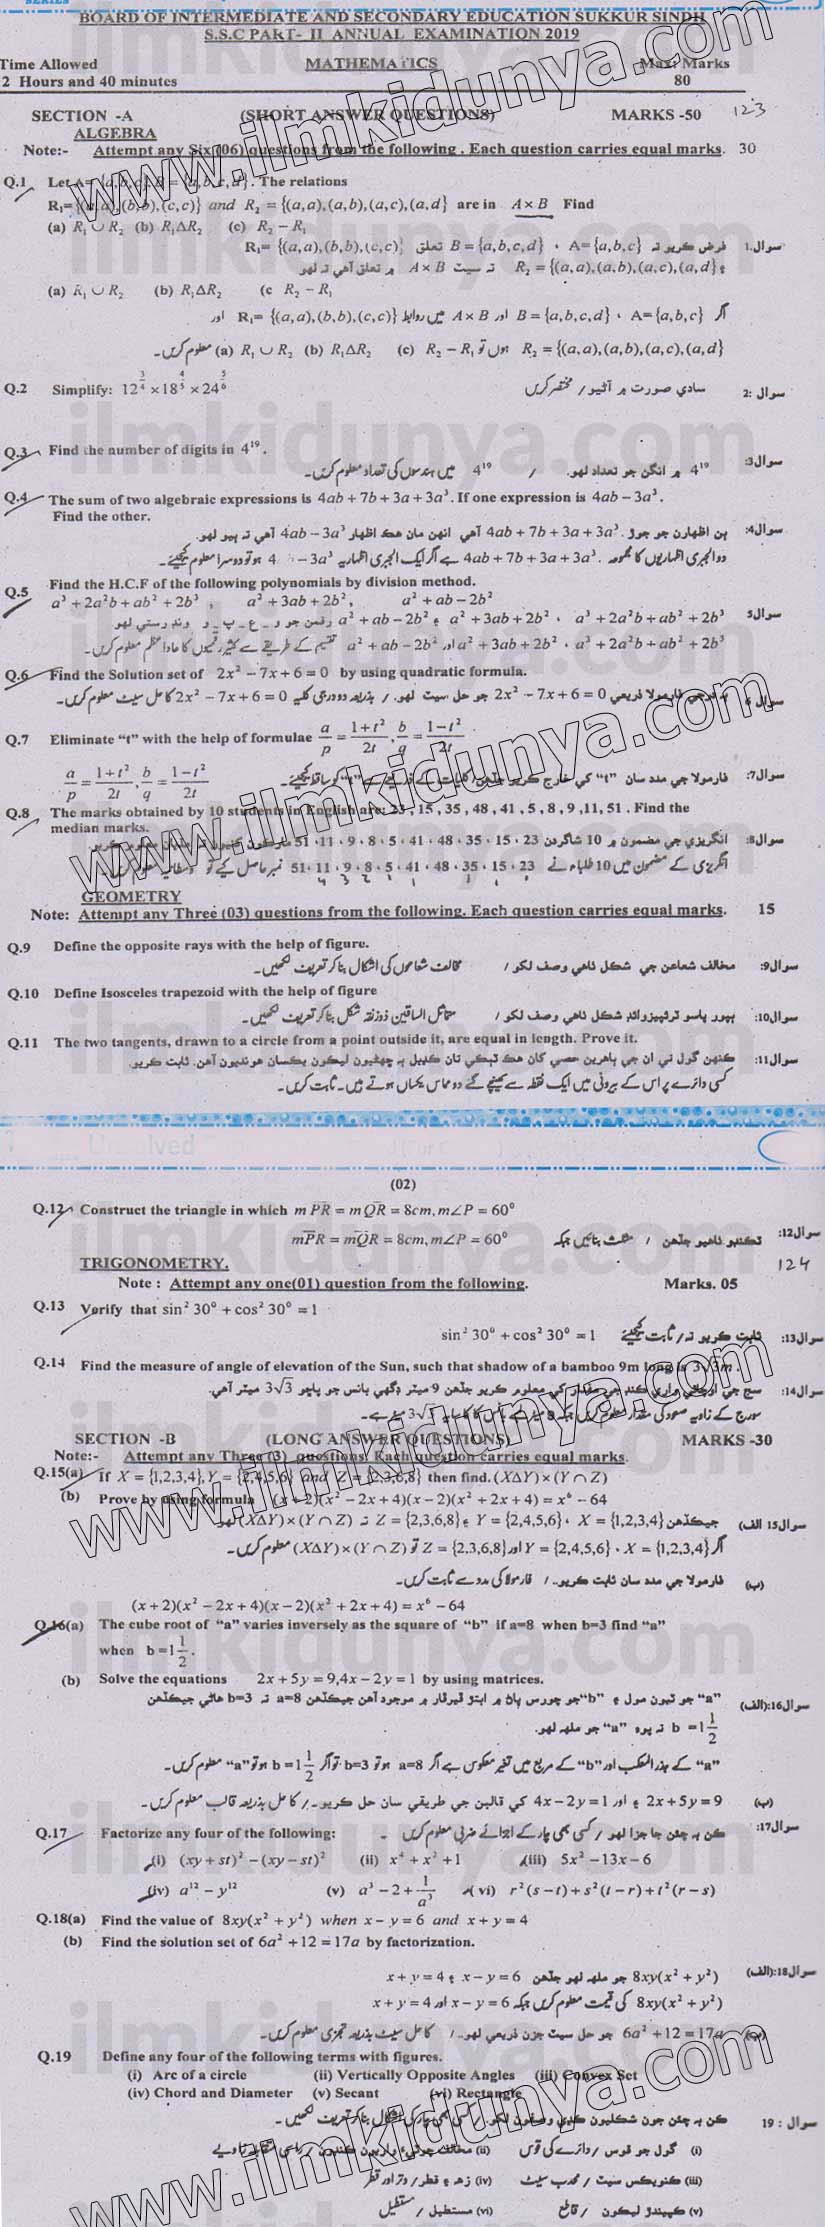 BOARD OF INTERMEDIATE AND SECONDARY EDUCATION SUKKUR SINDH
S.S.C PART- II ANNUAL EXAMINATION 2019
Time Allowed MATHEMATICS Max: Marks
2 Hours and 40 minutes 80
SECTION -A (SHORT ANSWER QUESTIONS) MARKS -50 123
ALGEBRA
Note:- Attempt any Six (06) questions from the following . Each question carries equal marks. 30
Q.1 Let A={a,b,c},B={a,b,c,d}. The relations
R₁={(a,a),(b,b),(c,c)} and R₂ = {(a,a),(a,b),(a,c),(a,d} are in A×B Find
(a) R₁ ∪ R₂ (b) R₁ΔR₂ (c) R₂ − R₁
سوال.1 فرض ڪريو ته A={a,b,c} ، B={a,b,c,d} تعلق R₁= {(a,a),(b,b),(c,c)}
۽ R₂ = {(a,a),(a,b),(a,c),(a,d} ته سيٽ A×B ۾ تعلق آهي ته لهو
(a) R₁ ∪ R₂ (b) R₁ΔR₂ (c R₂ − R₁
اگر A={a,b,c} ، B={a,b,c,d} اور A×B میں روابط R₁= {(a,a),(b,b),(c,c)} اور
R₂ = {(a,a),(a,b),(a,c),(a,d} ہوں تو (a) R₁ ∪ R₂ (b) R₁ΔR₂ (c) R₂ − R₁ معلوم کریں۔
Q.2 Simplify: 12^(3/4) ×18^(4/5) ×24^(5/6) سادي صورت ۾ آڻيو / مختصر کریں سوال :2
Q.3 Find the number of digits in 4¹⁹.
سوال3: 4¹⁹ ۾ انگن جو تعداد لهو. / 4¹⁹ میں ہندسوں کی تعداد معلوم کریں۔
Q.4 The sum of two algebraic expressions is 4ab+7b+3a+3a³. If one expression is 4ab−3a³.
Find the other.
سوال4: ٻن اظهارن جو جوڙ 4ab+7b+3a+3a³ آهي انهن مان هڪ اظهار 4ab−3a³ آهي ته ٻيو لهو.
دو الجبری اظہاریوں کا مجموعہ 4ab+7b+3a+3a³ ہے اگر ایک الجبری اظہاریہ 4 −3a³ ہو تو دوسرا معلوم کیجئے۔
Q.5 Find the H.C.F of the following polynomials by division method.
a³+2a²b+ab²+2b³ , a²+3ab+2b², a²+ab−2b²
سوال5 a³+2a²b+ab²+2b³ ، a²+3ab+2b² ۽ a²+ab−2b² رقمن جو و ـ ع ـ پ ـ و ونڊ رستي لهو
a³+2a²b+ab²+2b³ ، a²+3ab+2b² اور a²+ab−2b² تقسیم کے طریقے سے کثیر رقمیوں کا عاد اعظم معلوم کریں۔
Q.6 Find the Solution set of 2x²−7x+6=0 by using quadratic formula.
سوال 6 فارمولا ذريعي 2x²−7x+6=0 جو حل سيٽ لهو. / بذریعہ دو درجی کلیہ 2x²−7x+6=0 کا حل سیٹ معلوم کریں۔
Q.7 Eliminate “t” with the help of formulae a/p = (1+t²)/2t , b/q = (1−t²)/2t .
سوال7: فارمولا جي مدد سان “t” کي خارج ڪريو “t” کو ساقط کیجئے۔ a/p = (1+t²)/2t , b/q = (1−t²)/2t
Q.8 The marks obtained by 10 students in English are: 23,15,35,48,41,5,8,9,11,51 . Find the
median marks.
سوال8: انگريزي جي مضمون ۾ 10 شاگردن 23 ، 15 ، 35 ، 48 ، 41 ، 5 ، 8 ، 9 ، 11 ، 51
انگریزی کے مضمون میں 10 طلباء نے 23 ، 15 ، 35 ، 48 ، 41 ، 5 ، 8 ، 9 ، 11 ، 51 نمبر حاصل کیے تو وسطانیہ معلوم کریں۔
GEOMETRY
Note: Attempt any Three (03) questions from the following. Each question carries equal marks. 15
Q.9 Define the opposite rays with the help of figure.
سوال9: مخالف شعاعن جي شڪل ٺاهي وصف لکو / مخالف شعاعوں کی اشکال بنا کر تعریف لکھیں۔
Q.10 Define Isosceles trapezoid with the help of figure
سوال10: ٻہپور پاسو ٽرئپيزوائڊ شڪل ٺاهي وصف لکو / متماثل الساقین ذوزنقہ شکل بنا کر تعریف لکھیں۔
Q.11 The two tangents, drawn to a circle from a point outside it, are equal in length. Prove it.
سوال11: ڪنهن گول تي ان جي ٻاهرين حصي کان هڪ ٽٻڪي تان ڪڍيل ٻه ڇهندڙ ليڪون يڪسان هونديون آهن. ثابت ڪريو.
کسی دائرے پر اس کے بیرونی میں ایک نقطہ سے کھینچے گئے دو مماس یکساں ہوتے ہیں۔ ثابت کریں۔
(02)
Q.12 Construct the triangle in which mPR = mQR = 8cm, m∠P = 60°
سوال12: ٽڪنڊو ٺاهيو جڏهن / مثلث بنائیں جبکہ mPR = mQR = 8cm, m∠P = 60°
124
TRIGONOMETRY.
Note : Attempt any one(01) question from the following. Marks. 05
Q.13 Verify that sin² 30° + cos² 30° = 1
سوال13: ثابت ڪريو ته / ثابت کیجئے sin² 30° + cos² 30° = 1
Q.14 Find the measure of angle of elevation of the Sun, such that shadow of a bamboo 9m long is 3√3m .
سوال14: سج جي اوچائي واري ڪنڊ جي مقدار کي معلوم ڪريو جڏهن 9 ميٽر ڊگهي بانس جو پاڇو 3√3 ميٽر آهي.
سورج کے زاویہ صعود کی مقدار معلوم کریں جبکہ 9 میٹر لمبے بانس کا سایہ 3√3 میٹر ہے۔
SECTION -B (LONG ANSWER QUESTIONS) MARKS -30
Note:- Attempt any Three (3) questions. Each question carries equal marks.
Q.15(a) If X = {1,2,3,4},Y = {2,4,5,6} and Z = {2,3,6,8} then find. (XΔY)×(Y∩Z)
(b) Prove by using formula (x+2)(x²−2x+4)(x−2)(x²+2x+4) = x⁶−64
سوال15 الف) جيڪڏهن X = {1,2,3,4} ، Y = {2,4,5,6} ۽ Z = {2,3,6,8} ته (XΔY)×(Y∩Z) لهو
اگر X = {1,2,3,4} ، Y = {2,4,5,6} اور Z = {2,3,6,8} تو (XΔY)×(Y∩Z) معلوم کریں۔
(ب) فارمولا جي مدد سان ثابت ڪريو.. / فارمولا کی مدد سے ثابت کریں۔
(x+2)(x²−2x+4)(x−2)(x²+2x+4) = x⁶−64
Q.16(a) The cube root of “a” varies inversely as the square of “b” if a=8 when b=3 find “a”
when b=1 1/2 .
(b) Solve the equations 2x+5y=9,4x−2y=1 by using matrices.
سوال16:(الف) “a” جو ٽيون مول ۽ “b” جو چورس پاڻ ۾ ابتڙ ڦيرڦار ۾ موجود آهن جيڪڏهن a=8 ته b=3 هاڻي جيڪڏهن
b =1 1/2 ته پوءِ “a” جو ملهه لهو.
“a” کے جذر المکعب اور “b” کے مربع میں تغیر معکوس ہے اگر a=8 ہو تو b=3 تو اگر b =1 1/2 ہو تو “a” معلوم کریں۔
(ب) 2x+5y=9 ۽ اور 4x−2y=1 کي قالبن جي طريقي سان حل ڪريو۔ / کا حل بذریعہ قالب معلوم کریں۔
Q.17 Factorize any four of the following: ڪن به چئن جا جزا لهو / کسی بھی چار کے اجزائے ضربی معلوم کریں ۔ سوال17:
(i) (xy+st)²−(xy−st)² (ii) x⁴+x²+1 (iii) 5x²−13x−6
(iv) a¹²−y¹² (v) a³−2+1/a³ (vi) r²(s−t)+s²(t−r)+t²(r−s)
Q.18(a) Find the value of 8xy(x²+y²) when x−y=6 and x+y=4
(b) Find the solution set of 6a²+12=17a by factorization.
سوال18:(الف) 8xy(x²+y²) جو ملهه لهو جڏهن x−y=6 ۽ x+y=4
8xy(x²+y²) کی قیمت معلوم کریں جبکہ x−y=6 اور x+y=4
(ب) 6a²+12=17a جو حل سيٽ جزن ذريعي لهو.. / کا حل سیٹ بذریعہ تجزی معلوم کریں۔
Q.19 Define any four of the following terms with figures.
(i) Arc of a circle (ii) Vertically Opposite Angles (iii) Convex Set
(iv) Chord and Diameter (v) Secant (vi) Rectangle
سوال : 19 ڪن به چئن جون شڪليون ڪڍي وصفون لکو. / کسی بھی چار کی اشکال بنا کر تعریف لکھیں ۔
(i) گول جو قوس / دائرے کی قوس (ii)
(iii) ڪنويڪس سيٽ / محدب سیٹ (iv) زھ ۽ قطر / وتر اور قطر
(v) ڪپيندڙ ليڪون / قاطع (vi) مستطيل / مستطیل
www.ilmkidunya.com
ilmkidunya.com